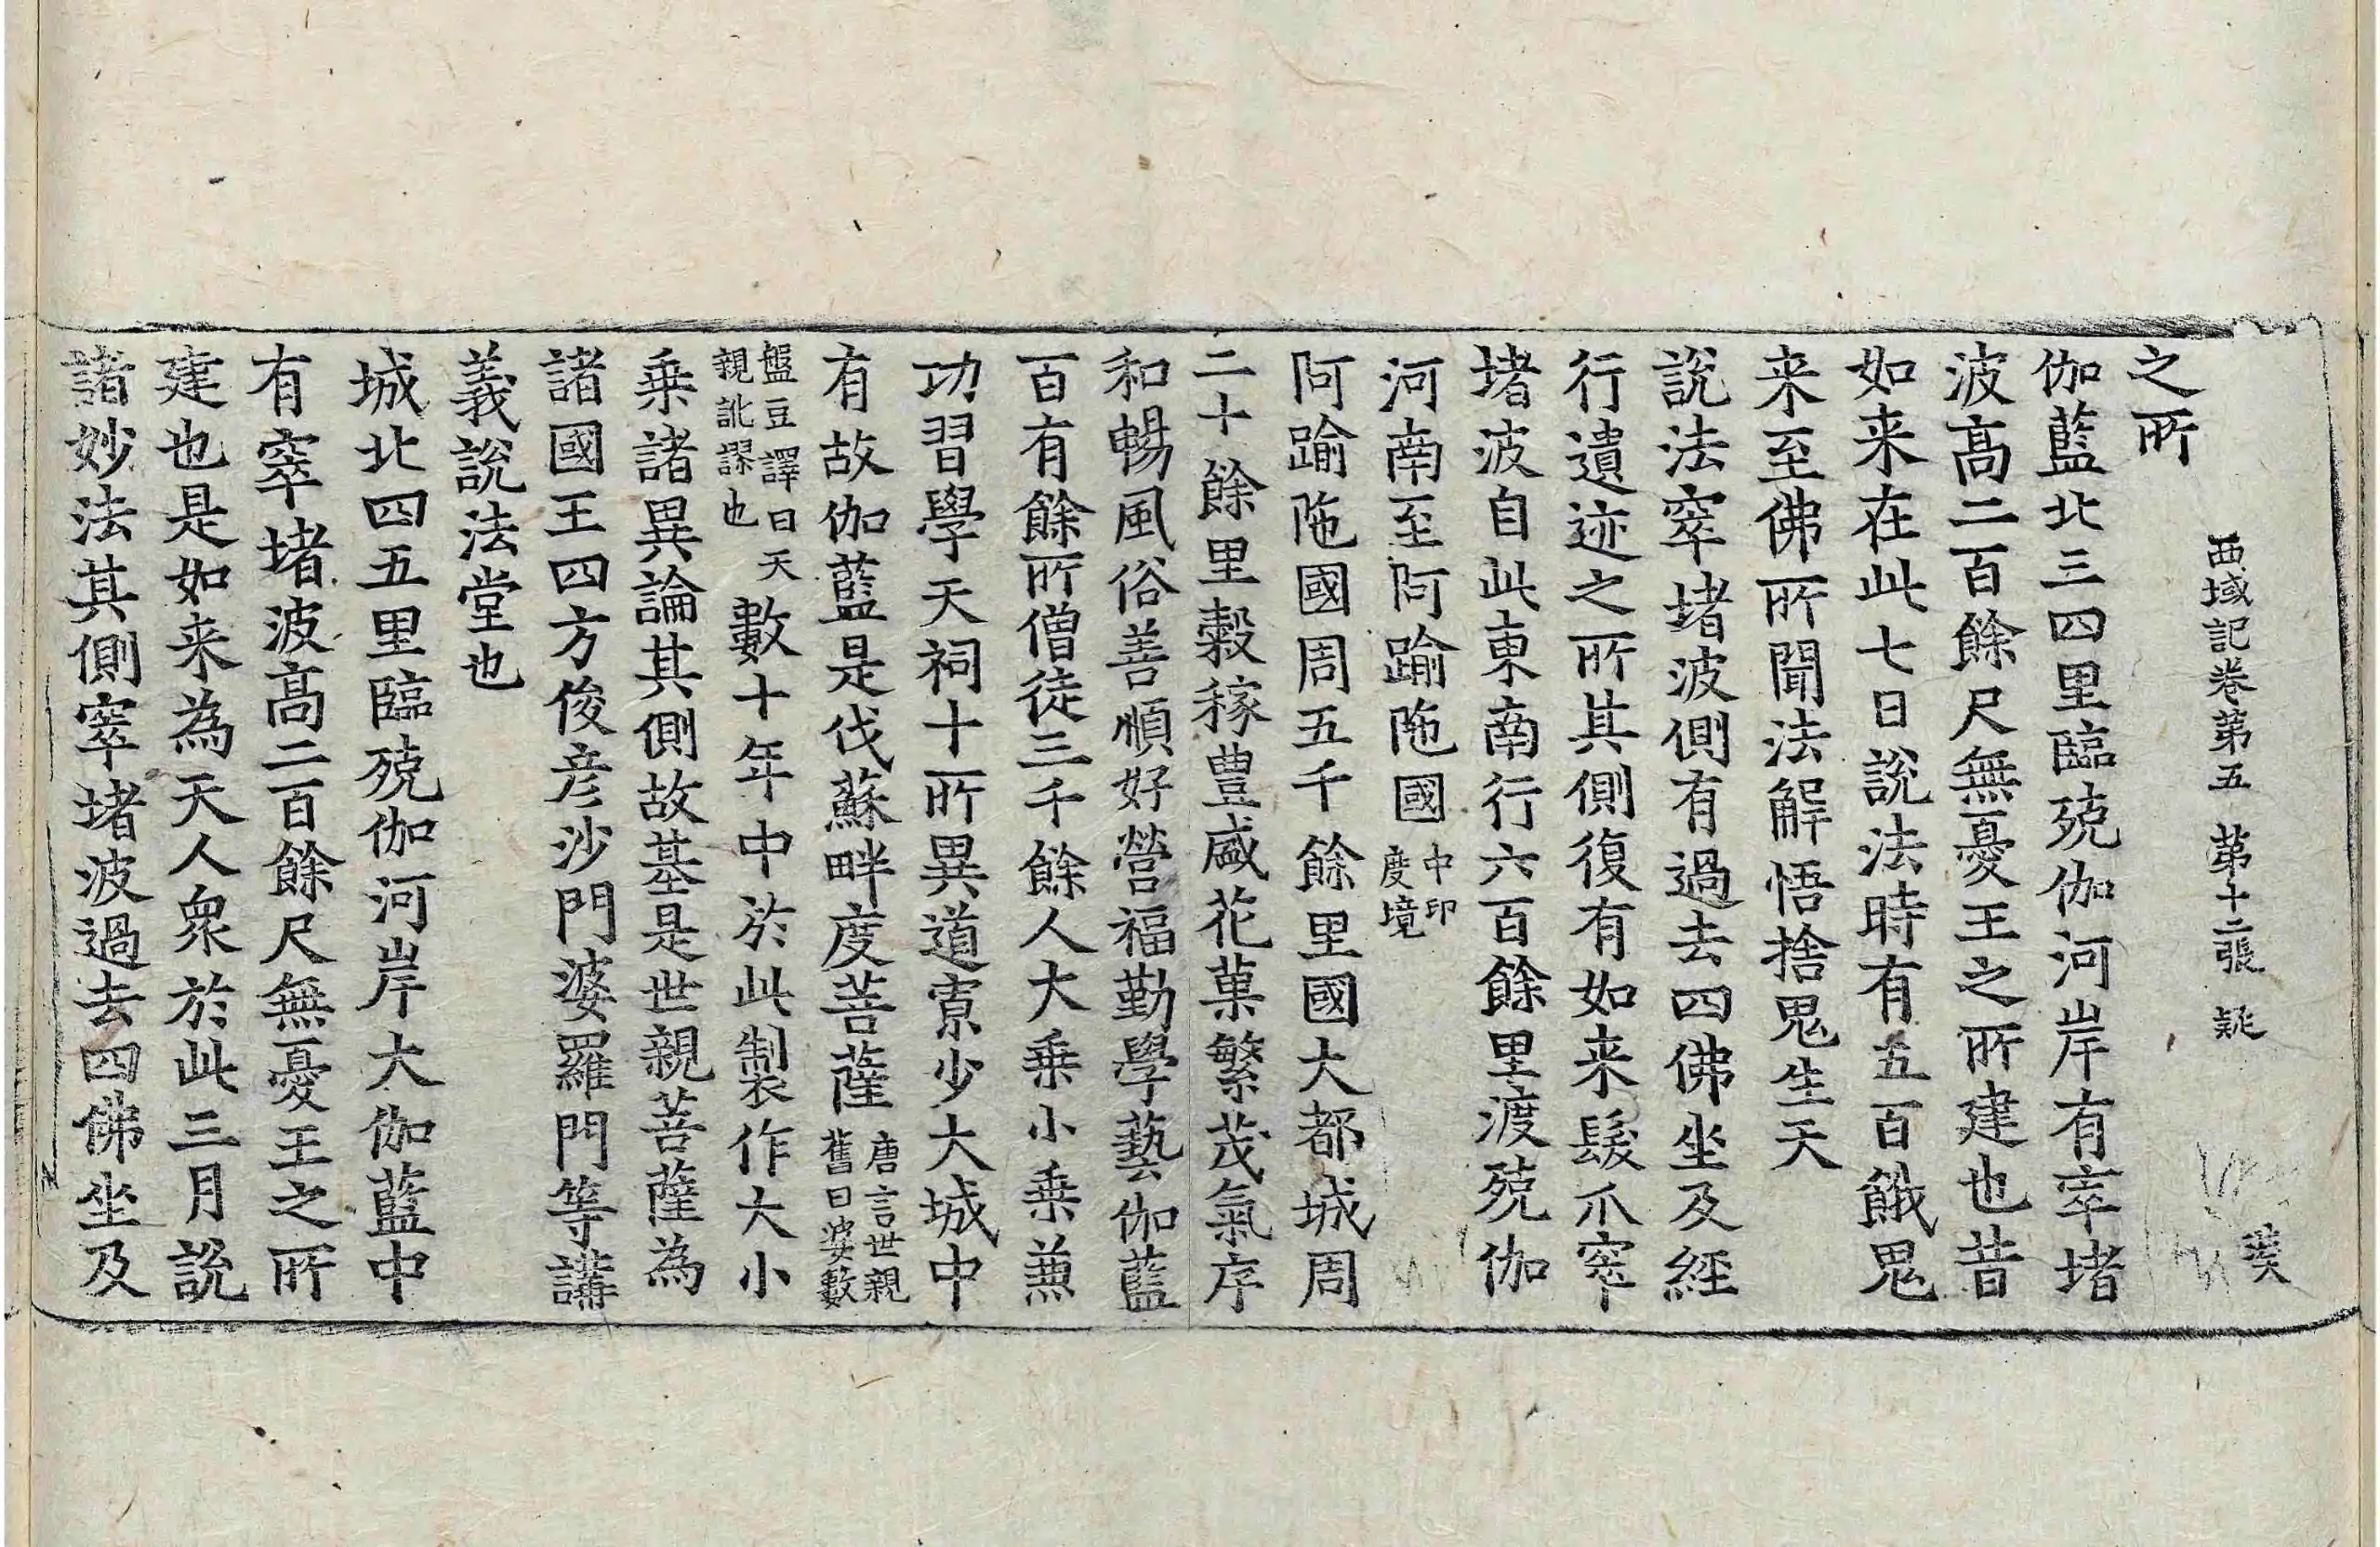 之所
西域記卷第五 第十二張 疑
伽藍北三四里臨殑伽河岸有窣堵
波高二百餘尺無憂王之所建也昔
如来在此七日說法時有五百餓鬼
来至佛所聞法解悟捨鬼生天
說法窣堵波側有過去四佛坐及經
行遺迹之所其側復有如来髮爪窣
堵波自此東南行六百餘里渡殑伽
河南至阿踰陁國中印度境
阿踰陁國周五千餘里國大都城周
二十餘里穀稼豊盛花菓繁茂氣序
和暢風俗善順好營福勤學藝伽藍
百有餘所僧徒三千餘人大乗小乗兼
功習學天祠十所異道寡少大城中
有故伽藍是伐蘇畔度菩薩唐言世親舊曰婆數
盤豆譯曰天親訛謬也數十年中於此製作大小
乗諸異論其側故基是世親菩薩為
諸國王四方俊彦沙門婆羅門等講
義說法堂也
城北四五里臨殑伽河岸大伽藍中
有窣堵波高二百餘尺無憂王之所
建也是如来為天人衆於此三月說
諸妙法其側窣堵波過去四佛坐及